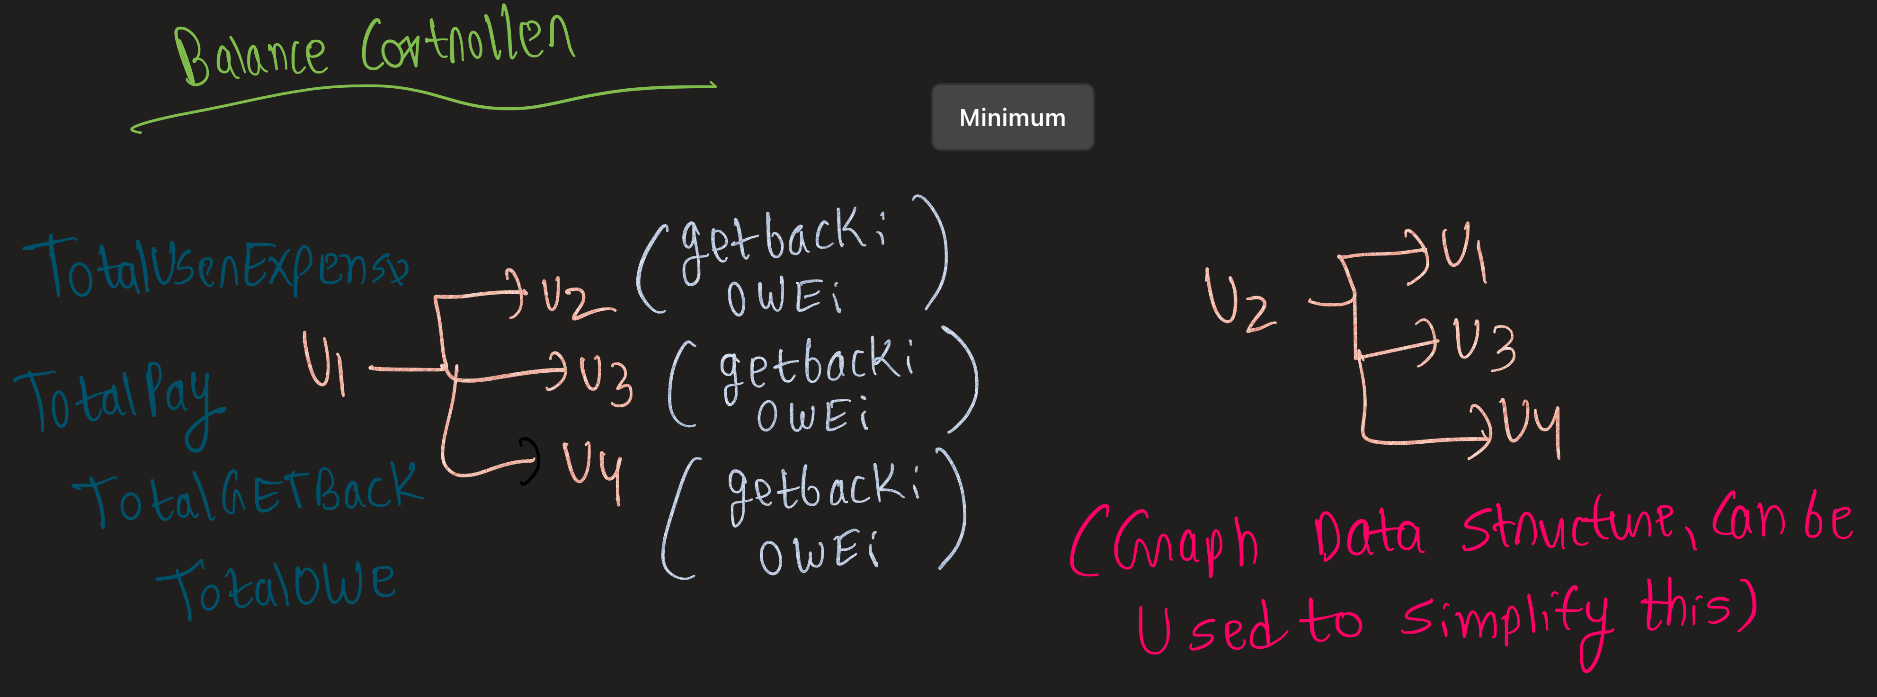 Balance Controller
Minimum
TotalUserExpense
TotalPay
TotalGETBack
TotalOWe
U1
U2 (getback; OWE;)
U3 (getback; OWE;)
U4 (getback; OWE;)
U2
U1
U3
U4
(Graph Data Structure, Can be
Used to simplify this)